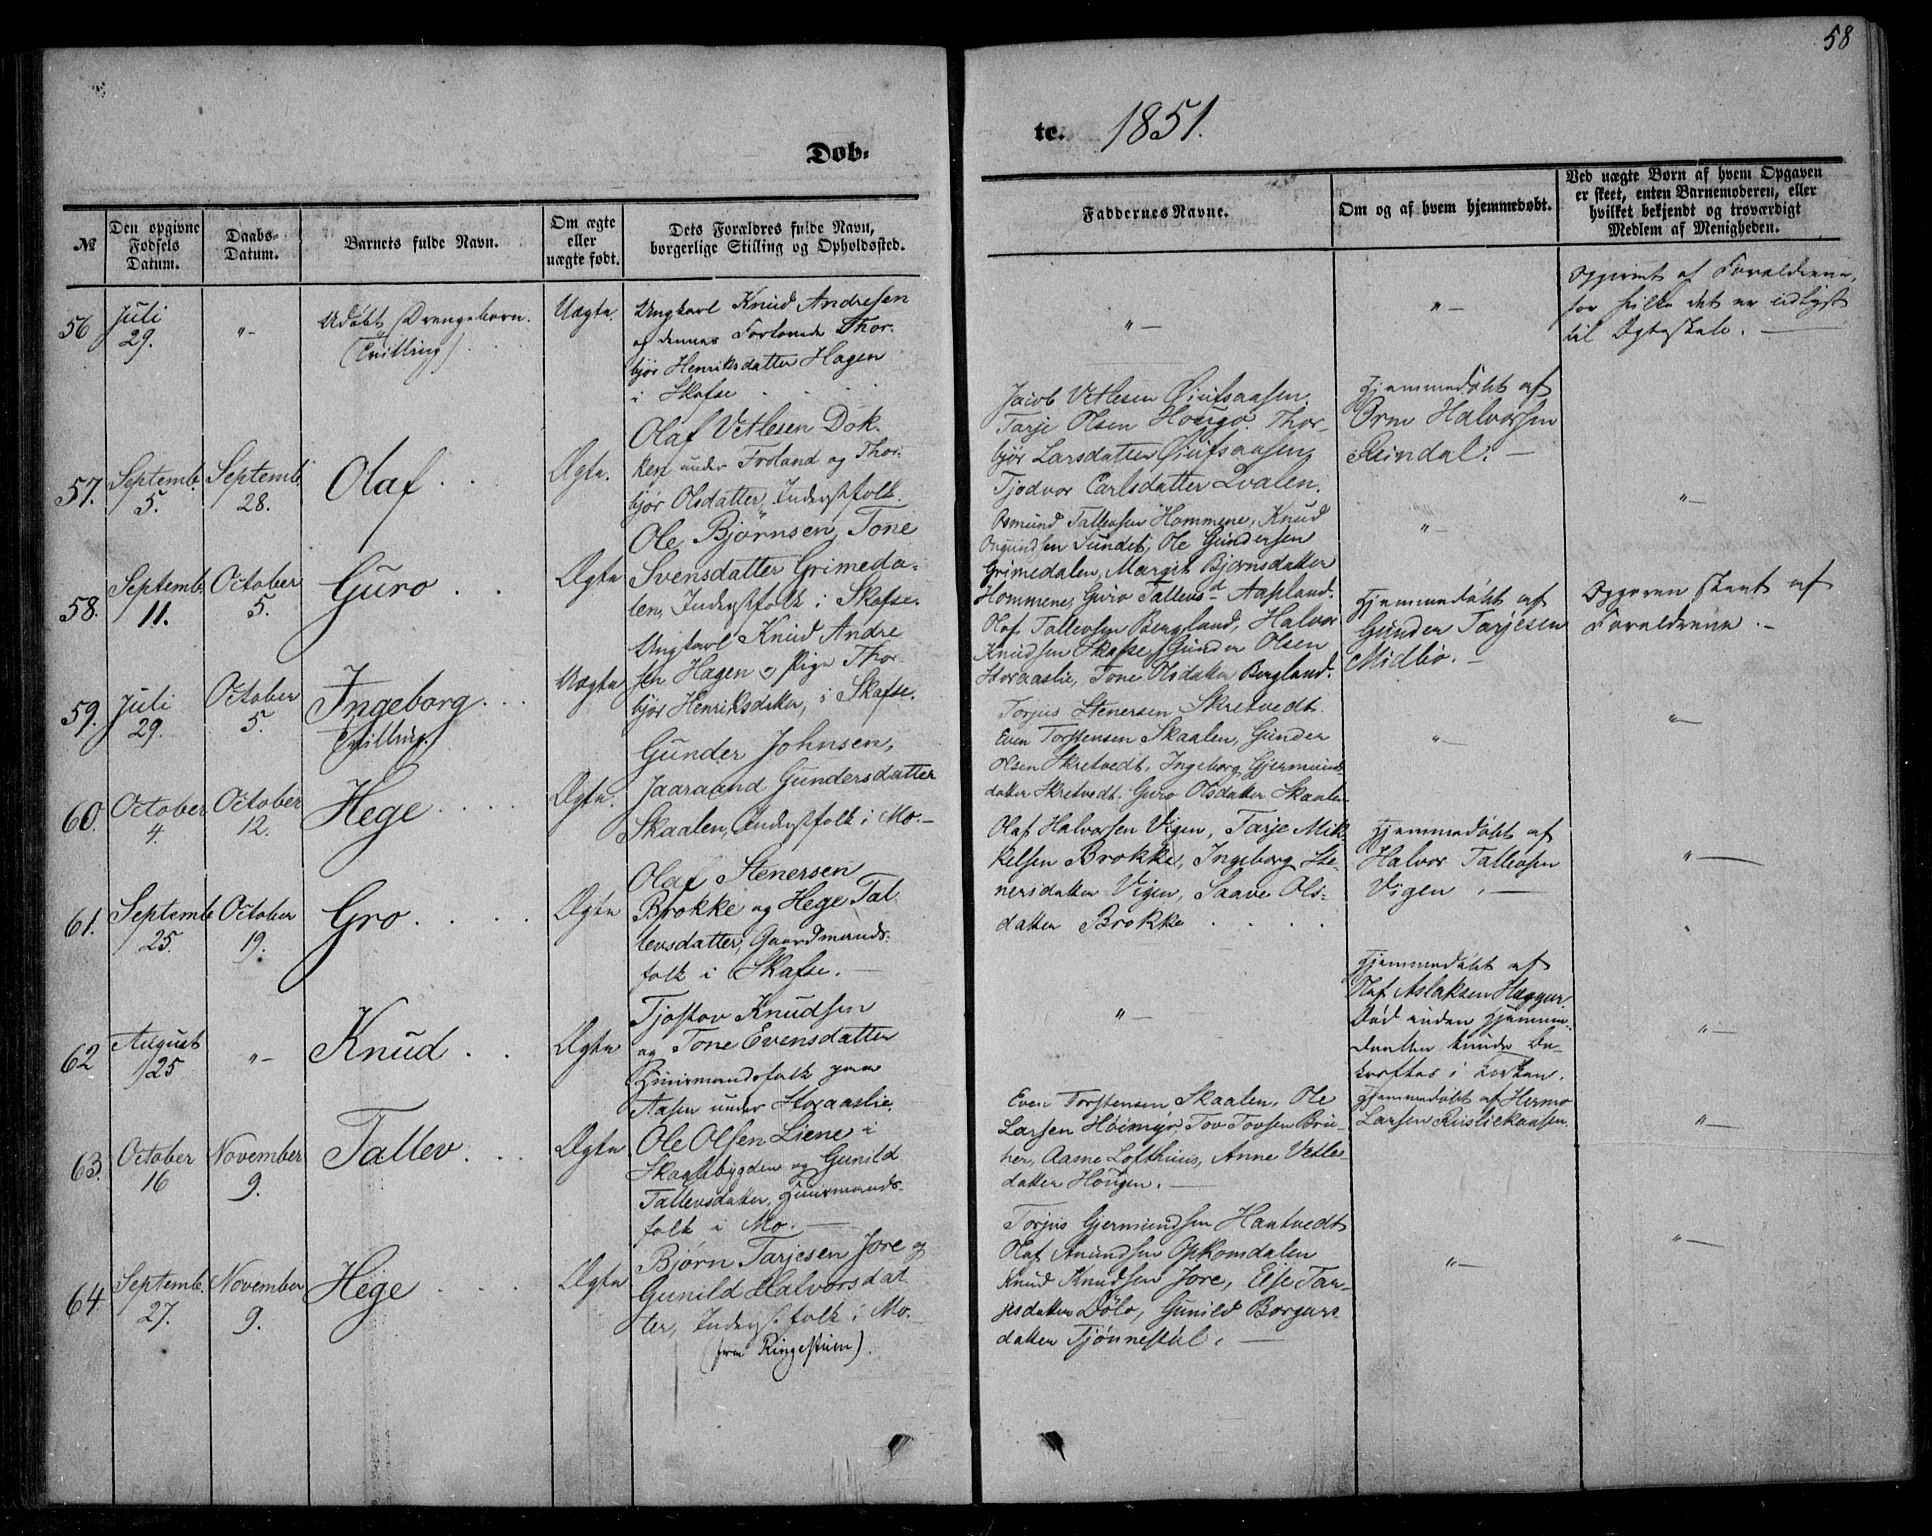 58
Döb-
te. 1851.
№
Den opgivne
Födsels
Datum.
Daabs-
Datum.
Barnets fulde Navn.
Om ægte
eller
uægte födt.
Dets Forældres fulde Navn,
borgerlige Stilling og Opholdssted.
Faddernes Navne.
Om og af hvem hjemmedöbt.
Ved uægte Börn af hvem Opgaven
er skeet, enten Barnemoderen, eller
hvilket bekjendt og troværdigt
Medlem af Menigheden.
56
Juli
29.
"-
Udøbt Drengebarn.
(Tvilling)
Uægte.
Ungkarl Knud Andresen
og dennes Forlovede Thor-
bjør Henriksdatter Hagen
i Skafse
"-
"-
Opgivet af Forældrene,
for hvilke det er udlyst
til Ægteskab.
57.
Septemb.
5.
Septemb.
28.
Olaf
Ægte.
Olaf Vetlesen Dok-
ken under Froland og Thor-
björ Olsdatter, Inderstfolk.
Jacob Vetlesen
Tarje Olsen Hougo. Thor-
björ Larsdatter
Tjodvor Carlsdatter Lvalen.
Hjemmedøbt af
Orm Halvorsen
Rindal. -
"-
58.
Septemb.
11.
October
5.
Guro
Ægte
Ole Bjørnsen, Tone
Svensdatter Grimeda-
len, Inderstfolk i Skafse.
Osmund Tallevsen Hommene, Knud
Ougundsen Sundet, Ole Gundersen
Grimedalen, Margit Bjørnsdatter
Hommene, Guro Tallevsd Aapland.
"-
59.
Juli
29.
October
5.
Ingeborg
(Tvilling.)
Uægte
Ungkarl Knud Andre
sen Hagen og Pige Thor-
bjør Henriksdatter, i Skafse.
Olaf Tallevsen Bergland, Halvor
Knudsen Skafse, Gunder Olsen
Storaaslie, Tone Olsdatter Bergland.
Hjemmedøbt af
Gunder Tarjesen
Midbö. -
Opgaven skeet af
Forældrene. -
60.
October
4.
October
12.
Hege
Ægte.
Gunder Johnsen,
Jaaraand Gundersdatter
Skaalen, Inderstfolk i Mo. -
Torjus Stenersen Skretvedt.
Even Torstensen Skaalen, Gunder
Olsen Skretvedt, Ingeborg Gjermunds-
datter Skretvedt. Guro Olsdatter Skaalen
"-
"-
61.
Septemb
25.
October
19.
Gro
Ægte
Olaf Stenersen
Brokke og Hege Tal
levsdatter, Gaardmands-
folk i Skafse. -
Olaf Halvorsen Vigen, Tarje Mik-
kelsen Brokke, Ingeborg Ste-
nersdatter Vigen, Saave Ols-
datter Brokke
Hjemmedøbt af
Halvor Tallevsen
Vigen. -
"-
62
August
25
"-
Knud
Ægte
Tjostov Knudsen
og Tone Evensdatter
Huusmandsfolk paa
Aasen under Storaaslie.
"-
Hjemmedøbt af
Olaf Aslaksen
Død inden Hjemme-
Daaben kunde Be-
kræftes i Kirken.
"-
63.
October
16
November
9.
Tallev
Ægte
Ole Olsen Liene i
Skaalebygden og Gunild
Tallevsdatter, Huusmands-
folk i Mo. -
Even Torstensen Skaalen, Ole
Larsen Høimyr, Tov Tovsen Bru-
Aasne Lofthuus, Anne Vetles
datter Hougen. -
Hjemmedøbt af Hermo
Larsen
"-
64
Septemb.
27.
November
9.
Hege
Ægte
Bjørn Tarjesen Jore og
Gunild Halvorsdat
ter, Inderstfolk i Mo. -
(fra Ringestuen).
Torjus Gjermundsen Haatvedt
Olaf Anundsen Opkomdalen
Knud Knudsen Jore, Else Tar-
jesdatter Dölo, Gunild Borgars
datter Tjønnestul. -
"-
"-